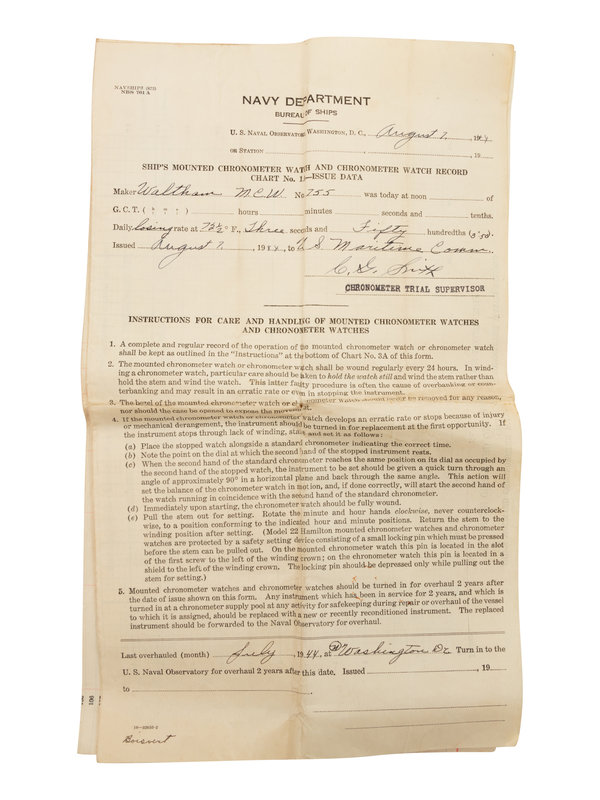 NAVSHIPS
NBS 701 A
NAVY DEPARTMENT
BUREAU OF SHIPS
U. S. NAVAL OBSERVATORY, WASHINGTON, D. C., August 7, 1944
OR STATION , 19
SHIP'S MOUNTED CHRONOMETER WATCH AND CHRONOMETER WATCH RECORD
CHART No. 1.—ISSUE DATA
Maker Waltham M.C.W. No 755 was today at noon of
G. C. T. ( ) hours minutes seconds and tenths.
Daily losing rate at 72½° F., Three seconds and Fifty hundredths (3.50).
Issued August 7, 1944, to U S Maritime Comm.
CHRONOMETER TRIAL SUPERVISOR
INSTRUCTIONS FOR CARE AND HANDLING OF MOUNTED CHRONOMETER WATCHES
AND CHRONOMETER WATCHES
1. A complete and regular record of the operation of the mounted chronometer watch or chronometer watch
shall be kept as outlined in the "Instructions" at the bottom of Chart No. 3A of this form.
2. The mounted chronometer watch or chronometer watch shall be wound regularly every 24 hours. In wind-
ing a chronometer watch, particular care should be taken to hold the watch still and wind the stem rather than
hold the stem and wind the watch. This latter faulty procedure is often the cause of overbanking or coun-
terbanking and may result in an erratic rate or even in stopping the instrument.
3. The bezel of the mounted chronometer watch or chronometer watch should never be removed for any reason,
nor should the case be opened to expose the movement.
4. If the mounted chronometer watch or chronometer watch develops an erratic rate or stops because of injury
or mechanical derangement, the instrument should be turned in for replacement at the first opportunity. If
the instrument stops through lack of winding, start and set it as follows:
(a) Place the stopped watch alongside a standard chronometer indicating the correct time.
(b) Note the point on the dial at which the second hand of the stopped instrument rests.
(c) When the second hand of the standard chronometer reaches the same position on its dial as occupied by
the second hand of the stopped watch, the instrument to be set should be given a quick turn through an
angle of approximately 90° in a horizontal plane and back through the same angle. This action will
set the balance of the chronometer watch in motion, and, if done correctly, will start the second hand of
the watch running in coincidence with the second hand of the standard chronometer.
(d) Immediately upon starting, the chronometer watch should be fully wound.
(e) Pull the stem out for setting. Rotate the minute and hour hands clockwise, never counterclock-
wise, to a position conforming to the indicated hour and minute positions. Return the stem to the
winding position after setting. (Model 22 Hamilton mounted chronometer watches and chronometer
watches are protected by a safety setting device consisting of a small locking pin which must be pressed
before the stem can be pulled out. On the mounted chronometer watch this pin is located in the slot
of the first screw to the left of the winding crown; on the chronometer watch this pin is located in a
shield to the left of the winding crown. The locking pin should be depressed only while pulling out the
stem for setting.)
5. Mounted chronometer watches and chronometer watches should be turned in for overhaul 2 years after
the date of issue shown on this form. Any instrument which has been in service for 2 years, and which is
turned in at a chronometer supply pool at any activity for safekeeping during repair or overhaul of the vessel
to which it is assigned, should be replaced with a new or recently reconditioned instrument. The replaced
instrument should be forwarded to the Naval Observatory for overhaul.
Last overhauled (month) July, 1944, at Washington DC Turn in to the
U. S. Naval Observatory for overhaul 2 years after this date. Issued , 19
to
106
Boisvert